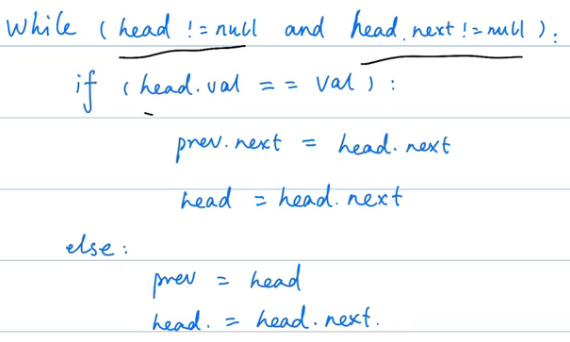 While (head != null and head.next != null):
if (head.val == val):
prev.next = head.next
head = head.next
else:
prev = head
head. = head.next.